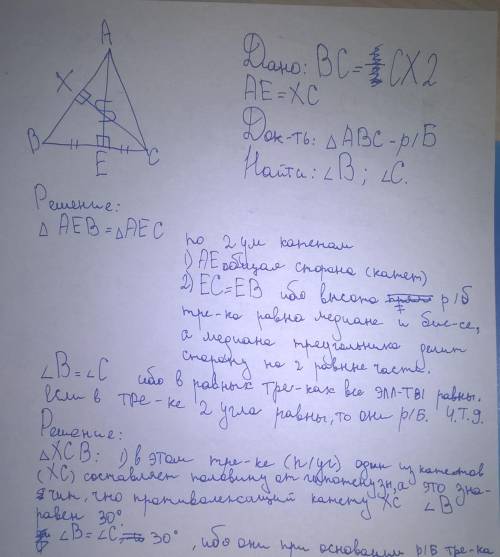 A
X
B
E
C
Дано: BC= CX2
AE=XC
Док-ть: △ABC-р/Б
Найти: ∠B; ∠C.
Решение:
△AEB=△AEC
по 2ум катетам
1) AE общая сторона (катет)
2) EC=EB ибо высота р/б
тре-ка равна медиане и бис-се,
а медиана треугольника делит
сторону на 2 равные части.
∠B=∠C ибо в равных тре-ках все ЭЛЛ-ТЫ равны.
Если в тре-ке 2 угла равны, то они р/Б. Ч.Т.Д.
Решение:
△XCB: 1) в этом тре-ке (п/уг) один из катетов
(XC) составляет половину от гипотенузы, а это зна-
чит, что противолежащий катету XC ∠B
равен 30°.
∠B=∠C, 30°, ибо они при основании р/Б тре-ка